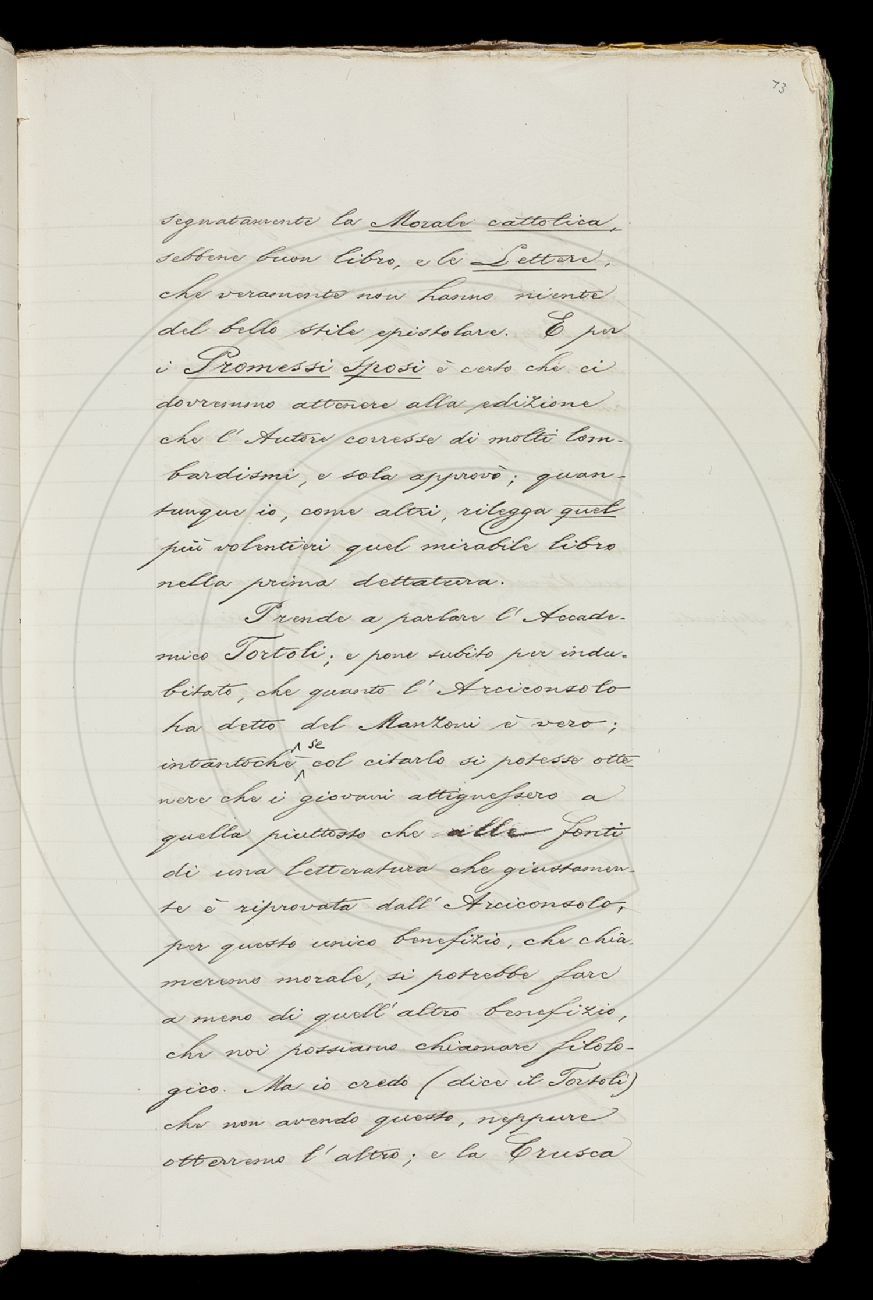 73
segnatamente la Morale cattolica,
sebbene buon libro, e le Lettere,
che veramente non hanno niente
del bello stile epistolare. E per
i Promessi Sposi è certo che ci
dovremmo attenere alla edizione
che l'Autore corresse di molti lom-
bardismi, e sola approvò; quan-
tunque io, come altri, rilegga quel
più volentieri quel mirabile libro
nella prima dettatura.
Prende a parlare l'Accade-
mico Tortoli; e pone subito per indu-
bitato, che quanto l'Arciconsolo
ha detto del Manzoni è vero;
intantochè se col citarlo si potesse otte-
nere che i giovani attignessero a
quella piuttosto che alle fonti
di una letteratura che giustamen-
te è riprovata dall'Arciconsolo,
per questo unico benefizio, che chia
meremo morale, si potrebbe fare
a meno di quell'altro benefizio,
che noi possiamo chiamare filolo-
gico. Ma io credo (dice il Tortoli)
che non avendo questo, neppure
otterremo l'altro; e la Crusca